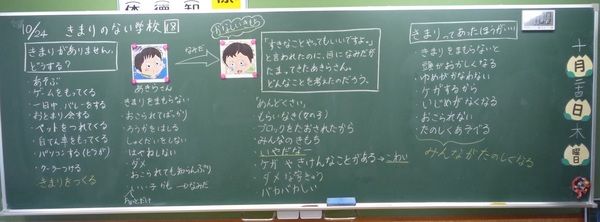 体 徳 知
10/24 きまりのない学校 18
きまりがありません。
どうする?
・あそぶ
・ゲームをもってくる
・一日中、バレーをする
・おとまり会する
・ペットをつれてくる
・自てん車をもってくる
・パソコンする
・クーラーつける
きまりをつくる
あきらさん
きまりをまもらない
・おこられてばっかり
・ろうかをはしる
・しゅくだいをしない
・はやねしない
・ダメ
・おこられても知らんぷり
なみだ
かなしいきもち
「すきなことやってもいいですよ。」
と言われたのに、目になみだが
たまってきたあきらさん。
どんなことを考えたのだろう。
・めんどくさい
・もらいなき(女の子)
・ブロックをたおされたから
・みんなのきもち
・いやだなー
・ケガ やきけんなことがある→こわい
・バカバカしい
きまりってあったほうが…
・きまりをまもらないと
頭がおかしくなる
・ゆめがかなわない
・ケガするから
・いじめがなくなる
・おこられない
・たのしくあそべる
みんながたのしくなる
十
月
二十四
日
木
曜日